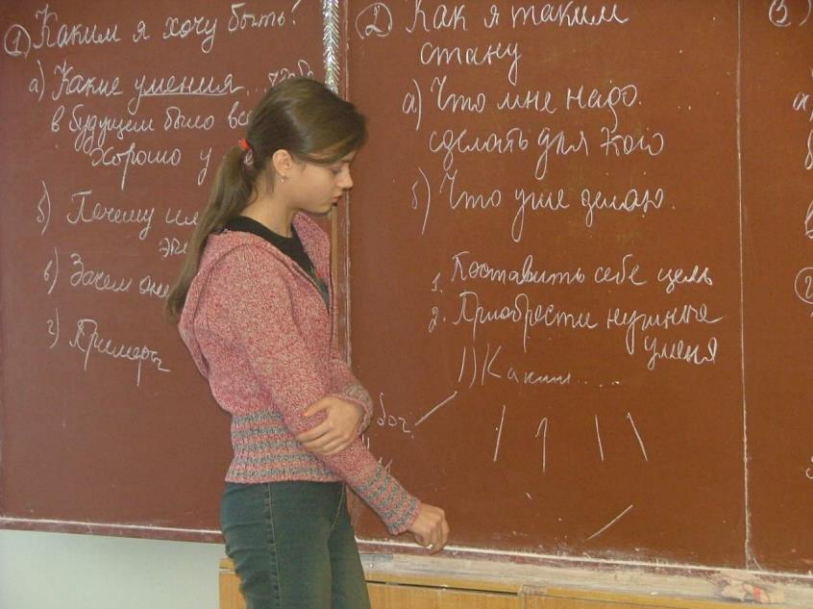 ① Каким я хочу быть?
а) Какие умения ... чтоб
в будущем было все
хорошо у
б) Почему
в) Зачем они
г) Примеры
② Как я таким
стану
а) Что мне надо
сделать для кого
б) Что уже делаю.
1. Поставить себе цель
2. Приобрести нужные
уменя
1) Каким....
бог.